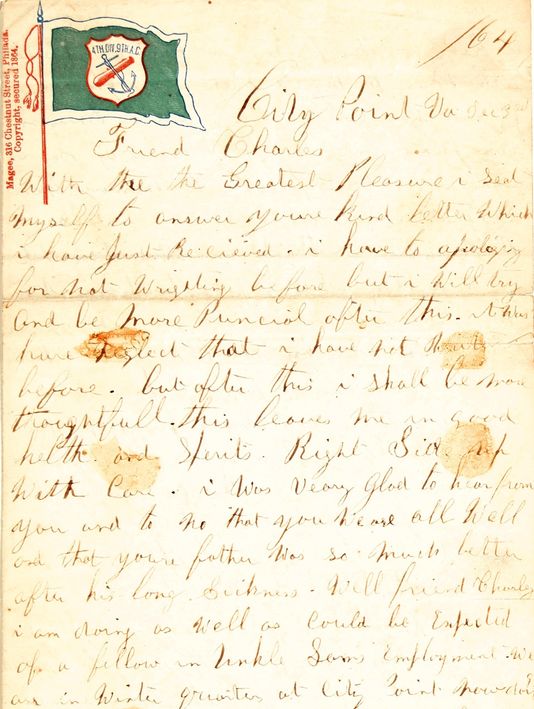 Magee, 316 Chestnut Street, Philada.
Copyright, secured 1864.
4TH. DIV. 9TH. A.C.
/64
City Point Va Dec 3rd
Friend Charles
With the the Greatest Pleasure i Seat
myself to answer youre Kind letter Which
i have Just Recieved. i have to apologiz
for not Wrighting before but i Will try
and be More Puncial after this. it Was
pure neglect that i have not
before. but after this i shall be more
thoughtfull. this leaves me in good
helth and Spirits. Right Side up
With Care. i Was veary Glad to hear from
you and to no that you Weare all Well
and that youre father Was so much better
after his long Sickness. Well friend Charles
i am doing as Well as Could be Expected
of a fellow in Unkle Sams Employment. We
are in Winter quarters at City Point now